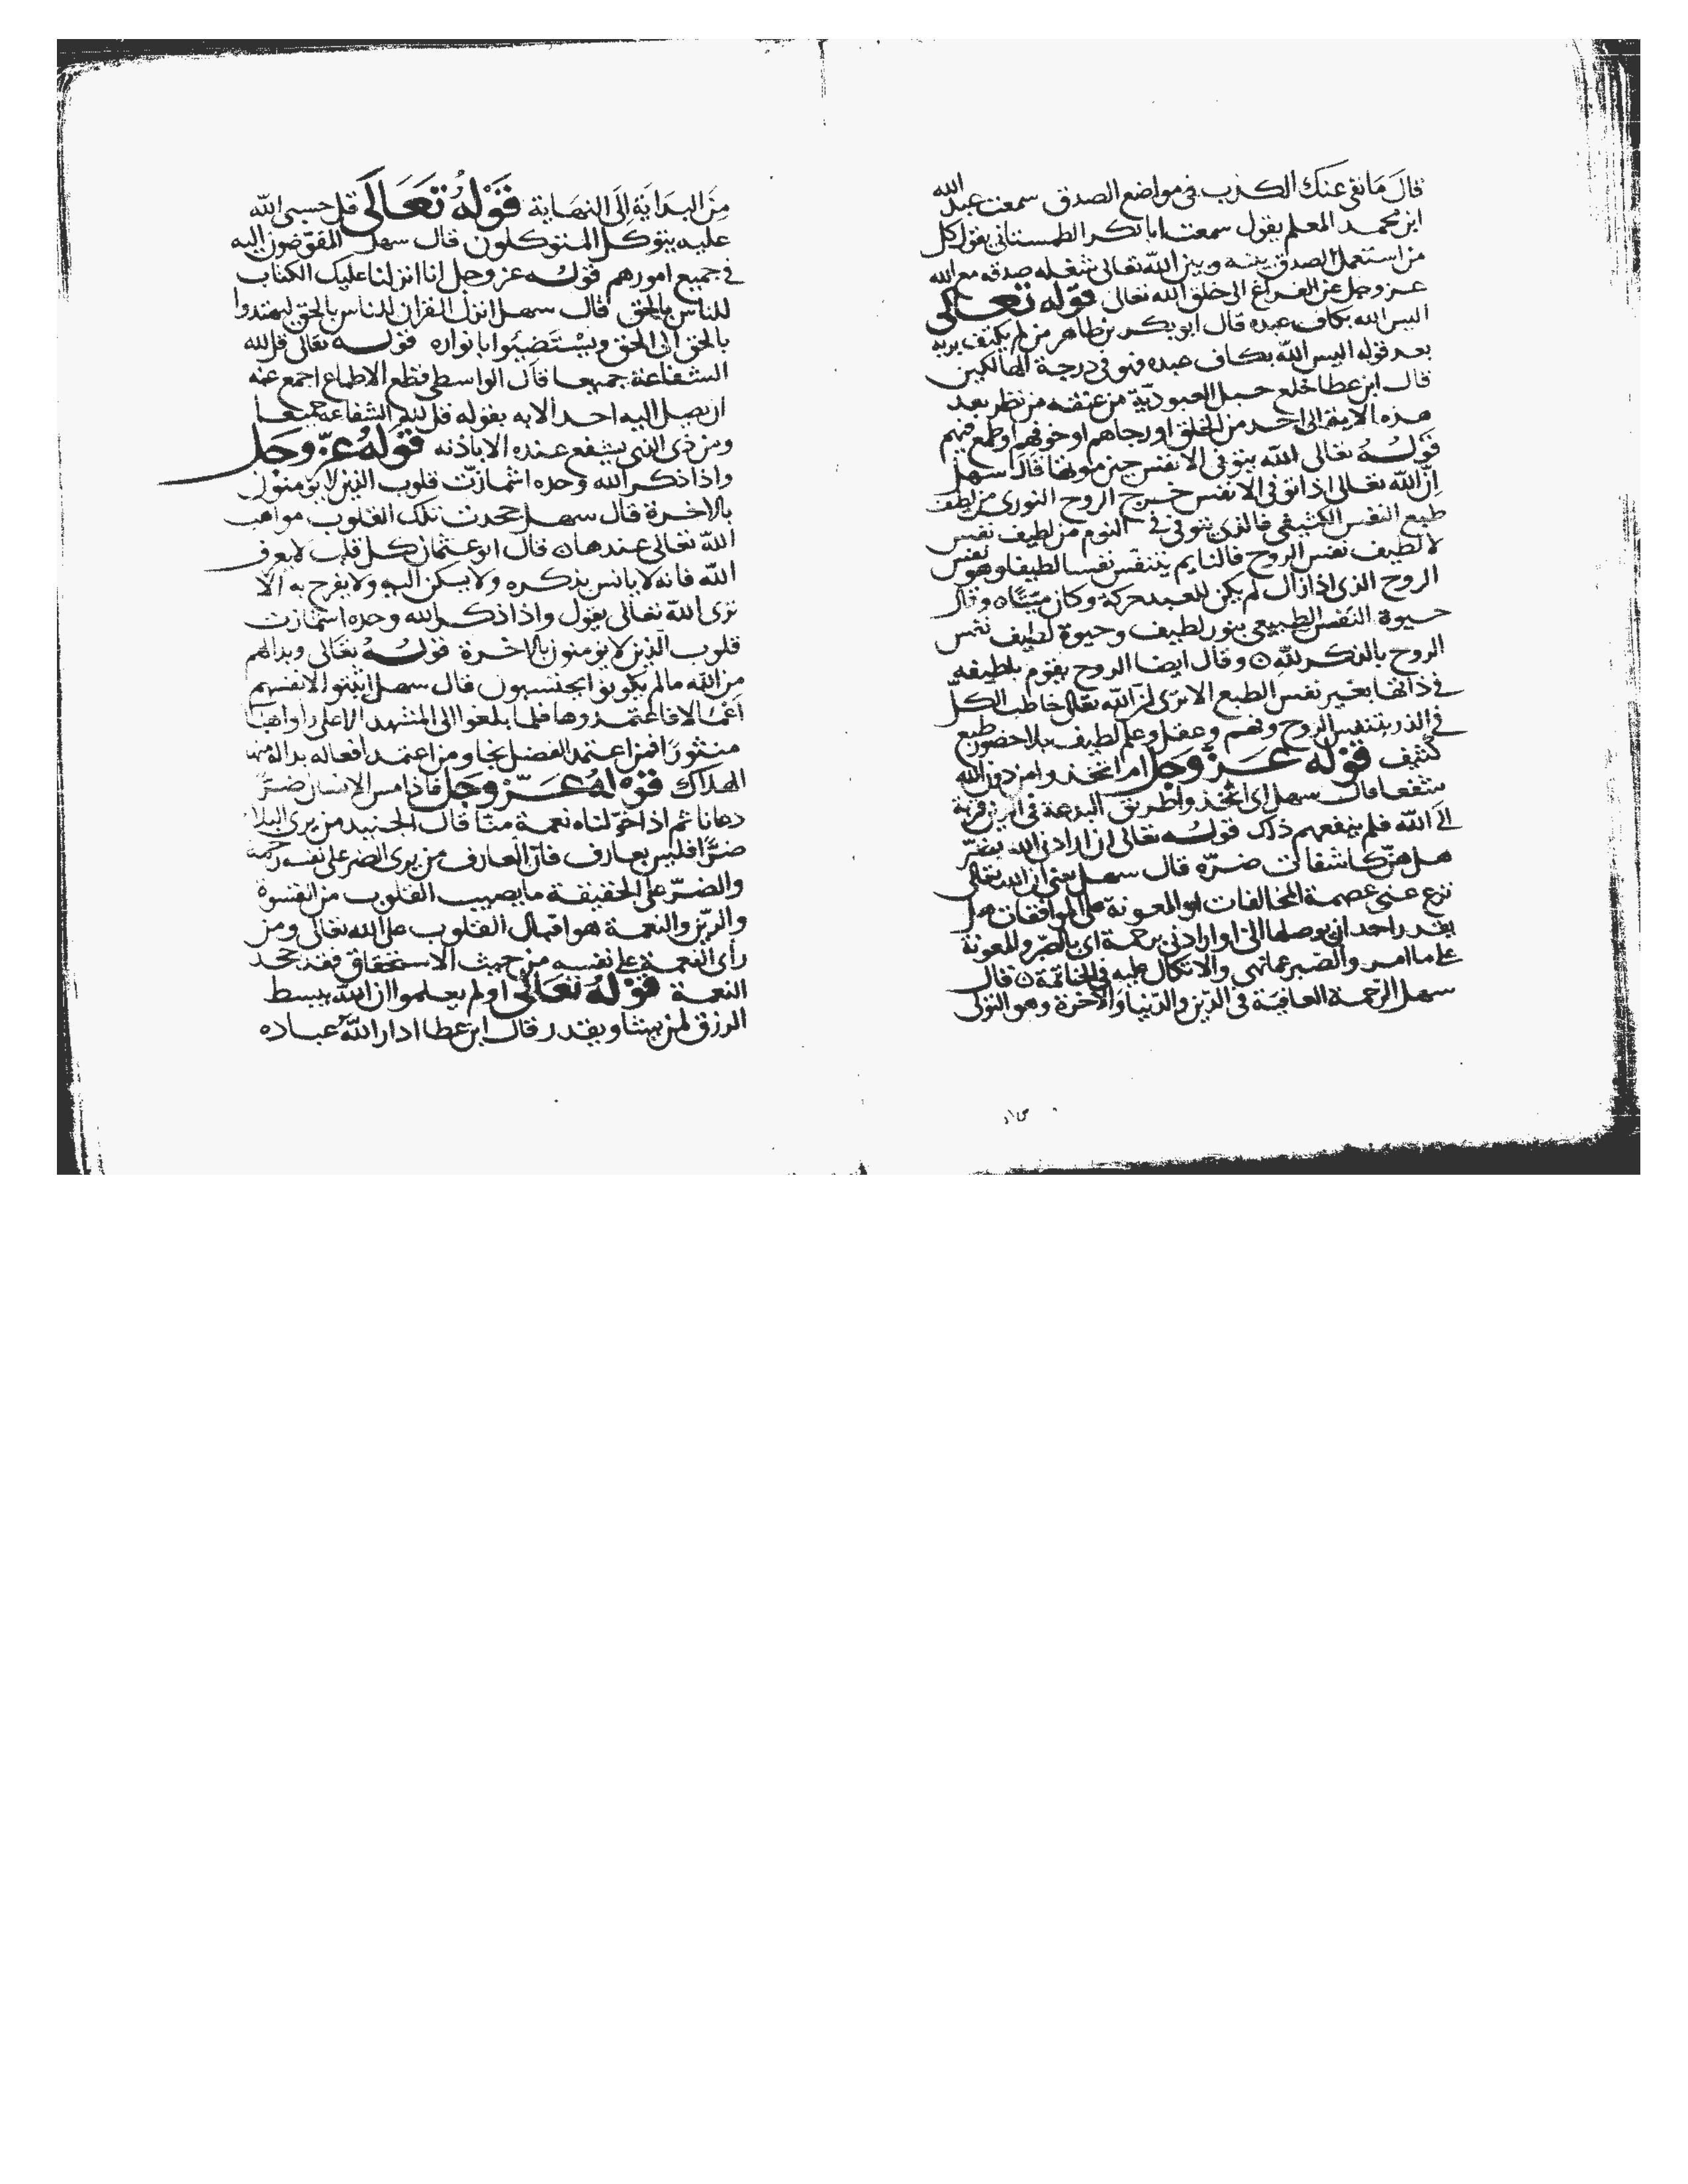 قال ما نفى عنك الكذب في مواضع الصدق سمعت عبد الله
ابن محمد المعلم يقول سمعت ابا بكر الطمستاني يقول كل
من استعمل الصدق بينه وبين الله تعالى شغله صدقه مع الله
عز وجل عن الفراغ الى خلق الله تعالى قوله تعالى
اليس الله بكاف عبده قال ابو بكر بن طاهر من لم يكتف بربه
بعد قوله اليس الله بكاف عبده فهو في درجة الهالكين
قال ابن عطا خلع حبل العبودية من عنقه من نظر بعد
هذه الاية الى احد من الخلق او رجاهم او خوفهم او طمع فيهم
قوله تعالى الله يتوفى الانفس حين موتها قال سهل
ان الله تعالى اذا توفى الانفس خرج الروح النورى من لطف
طبع النفس الكثيفى فالذى يتوفى فى النوم من لطيف نفس
لا لطيف نفس الروح فالنايم يتنفس نفسا لطيفا وهو نفس
الروح الذى اذا زال لم يكن للعبد حركة وكان ميتا وقال
حيوة النفس الطبيعى بنور لطيف وحيوة لطيف نفس
الروح بالذكر لله وقال ايضا الروح يقوم بلطيفه
في ذاتها بغير نفس الطبع الا ترى ان الله تعالى خاطب الكل
في الذر بنفس الروح وفهم وعقل وعلم لطيف بلا حضور طبع
كثيف قوله عز وجل ام اتخذوا من دون الله
شفعا قال سهل اى اتخذوا طريق البدعة في الدين قربة
الى الله فلم ينفعهم ذلك قوله تعالى ان ارادني الله بضر
هل هن كاشفات ضره قال سهل يعنى ان الله تعالى
نزع عنى عصمة المخالفات او المعونة على الموافقات هل
يقدر احد ان يوصلها الى او ارادني برحمة اى بالصبر والمعونة
على ما امر والصبر عما نهى والاتكال عليه في الخاتمة قال
سهل الرحمة العافية في الدين والدنيا والاخرة وهو التولى
من البداية الى النهاية قوله تعالى قل حسبى الله
عليه يتوكل المتوكلون قال سهل المفوضون اليه
في جميع امورهم قوله عز وجل انا انزلنا عليك الكتاب
للناس بالحق قال سهل انزل القران للناس بالحق ليهتدوا
بالحق الى الحق ويستضيئوا بانواره قوله تعالى قل لله
الشفاعة جميعا قال الواسطى قطع الاطماع اجمع عنه
ان يصل اليه احد الا به بقوله قل لله الشفاعة جميعا
ومن ذى الذى يشفع عنده الا باذنه قوله عز وجل
واذا ذكر الله وحده اشمازت قلوب الذين لا يومنون
بالاخرة قال سهل جحدت تلك القلوب مواهب
الله تعالى عندها قال ابو عثمان كل قلب لا يعرف
الله فانه لا يانس بذكره ولا يسكن اليه ولا يفرح به الا
ترى الله تعالى يقول واذا ذكر الله وحده اشمازت
قلوب الذين لا يومنون بالاخرة قوله تعالى وبدا لهم
من الله ما لم يكونوا يحتسبون قال سهل اثبتوا لانفسهم
اعمالا فاعتمدوها فلما بلغوا الى المشهد الاعلى راوا هبا
منثورا فمن اعتمد الفضل نجا ومن اعتمد افعاله بدا له منه
الهلاك قوله عز وجل فاذا مس الانسان ضر
دعانا ثم اذا خولناه نعمة منا قال الجنيد من يرى البلا
ضرا فليس بعارف فان العارف من يرى الضر على نفسه رحمة
والضر على الحقيقة ما يصيب القلوب من القسوة
والرين والنعمة هو اقبال القلوب على الله تعالى ومن
راى النعمة على نفسه من حيث الاستحقاق فقد جحد
النعمة قوله تعالى اولم يعلموا ان الله يبسط
الرزق لمن يشا ويقدر قال ابن عطا ادار الله عباده